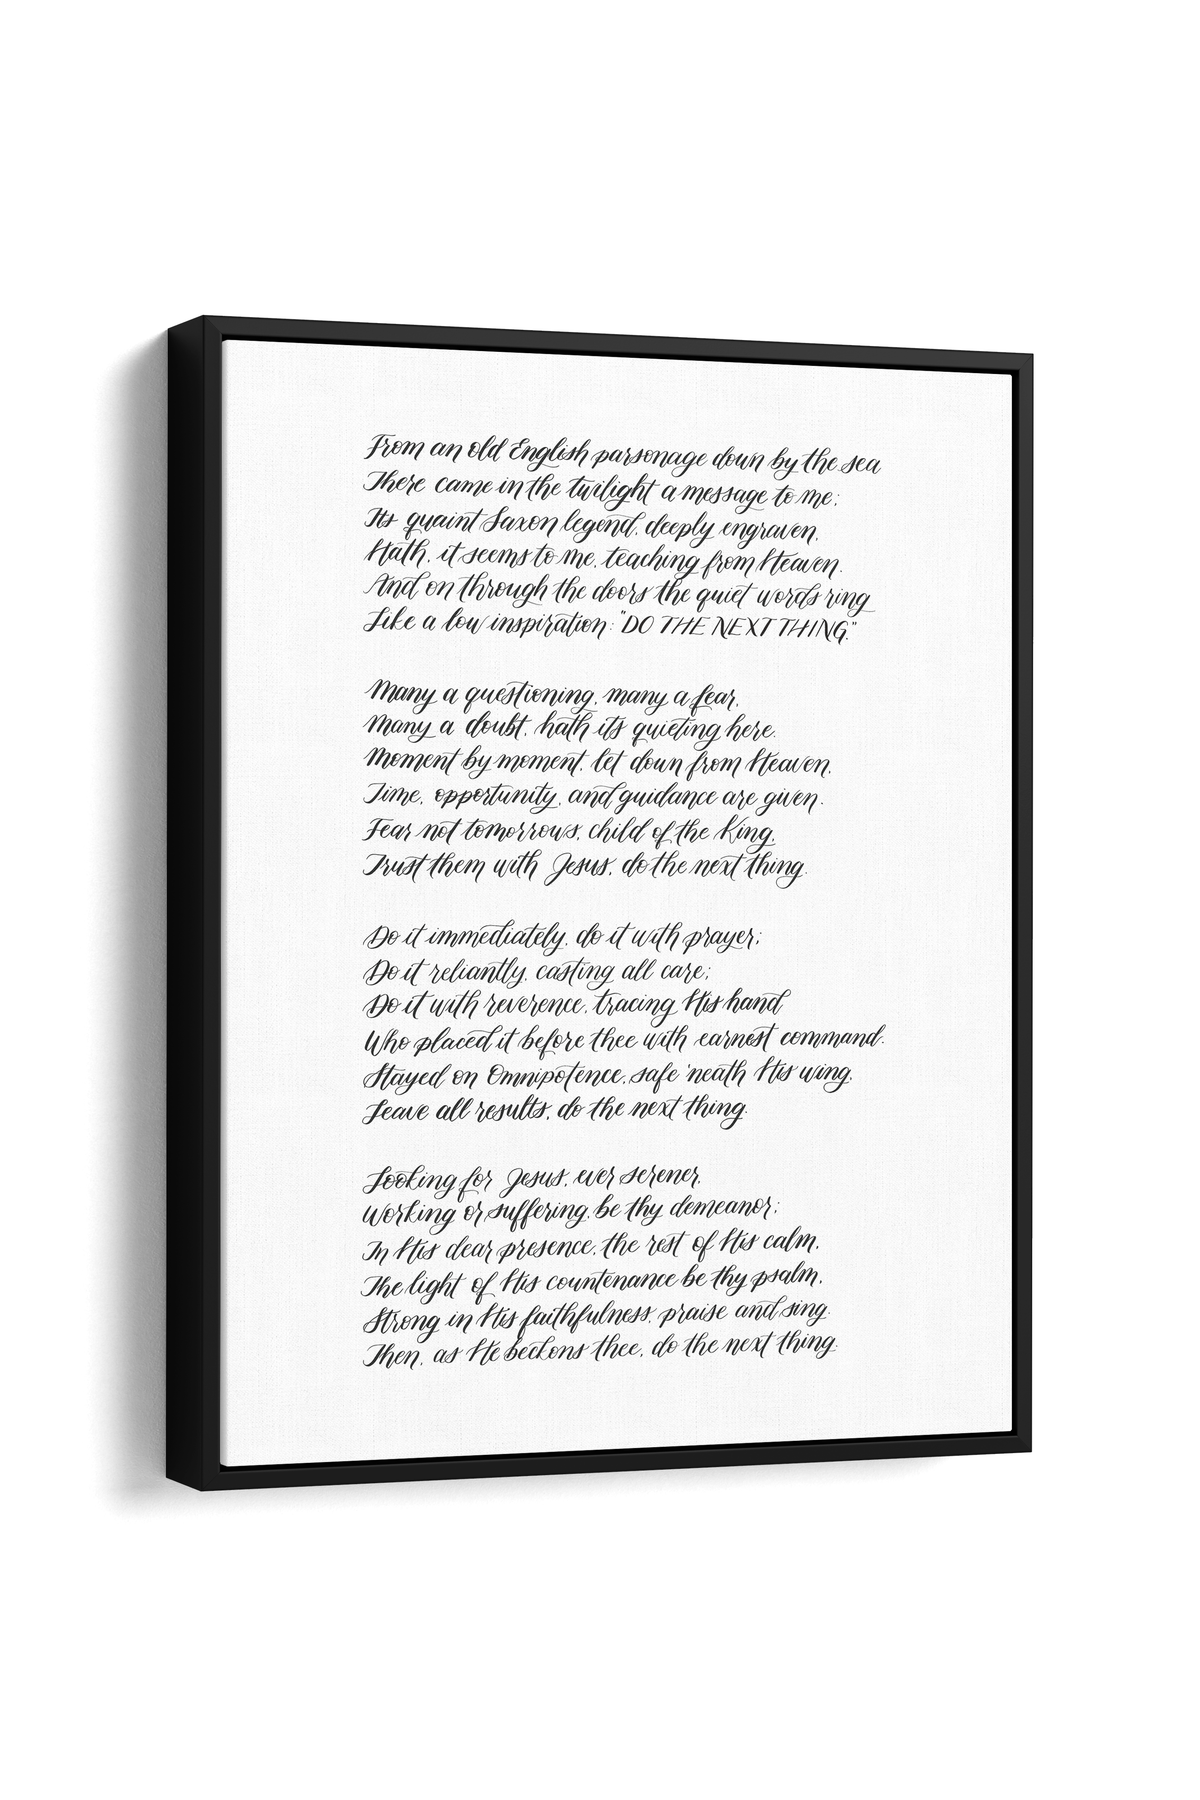 From an old English parsonage down by the sea
There came in the twilight a message to me;
Its quaint Saxon legend, deeply engraven,
Hath, it seems to me, teaching from Heaven.
And on through the doors the quiet words ring
Like a low inspiration: "DO THE NEXT THING."
Many a questioning, many a fear,
Many a doubt, hath its quieting here.
Moment by moment, let down from Heaven,
Time, opportunity, and guidance are given.
Fear not tomorrows, child of the King,
Trust them with Jesus, do the next thing.
Do it immediately, do it with prayer;
Do it reliantly, casting all care;
Do it with reverence, tracing His hand
Who placed it before thee with earnest command.
Stayed on Omnipotence, safe 'neath His wing,
Leave all results, do the next thing.
Looking for Jesus, ever serener,
Working or suffering, be thy demeanor;
In His dear presence, the rest of His calm,
The light of His countenance be thy psalm,
Strong in His faithfulness, praise and sing.
Then, as He beckons thee, do the next thing.